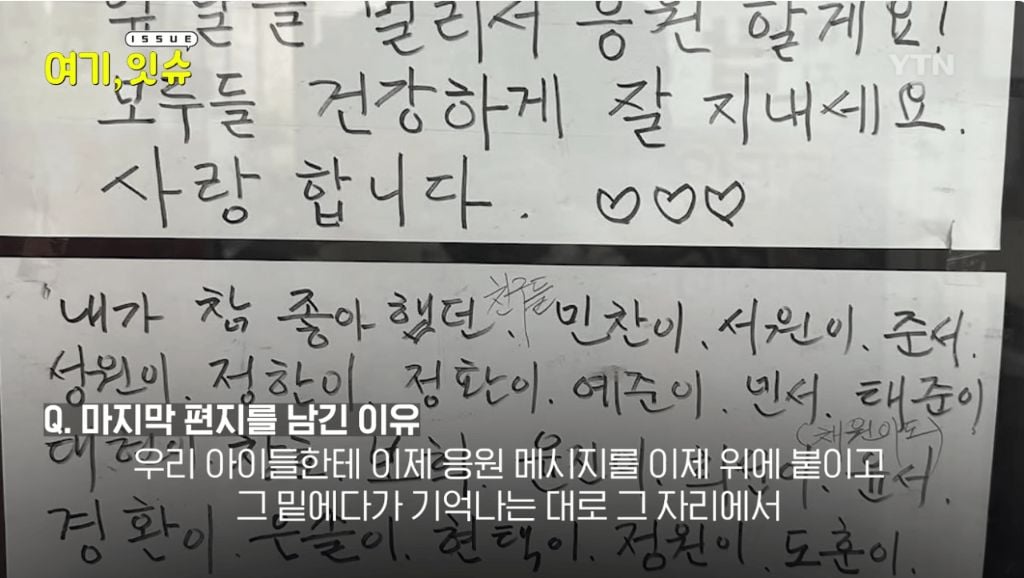 ISSUE
여기,잇슈
YTN
멀리서 응원 할게요!
모두들 건강하게 잘 지내세요.
사랑 합니다. ♡♡♡
내가 참 좋아 했던 친구들 민찬이. 서원이. 준서.
성원이. 정한이. 정환이. 예준이. 민서. 태준이
(채원이도)
윤서.
경환이. 은솔이. 현택이. 정원이. 도훈이.
Q. 마지막 편지를 남긴 이유
우리 아이들한테 이제 응원 메시지를 이제 위에 붙이고
그 밑에다가 기억나는 대로 그 자리에서